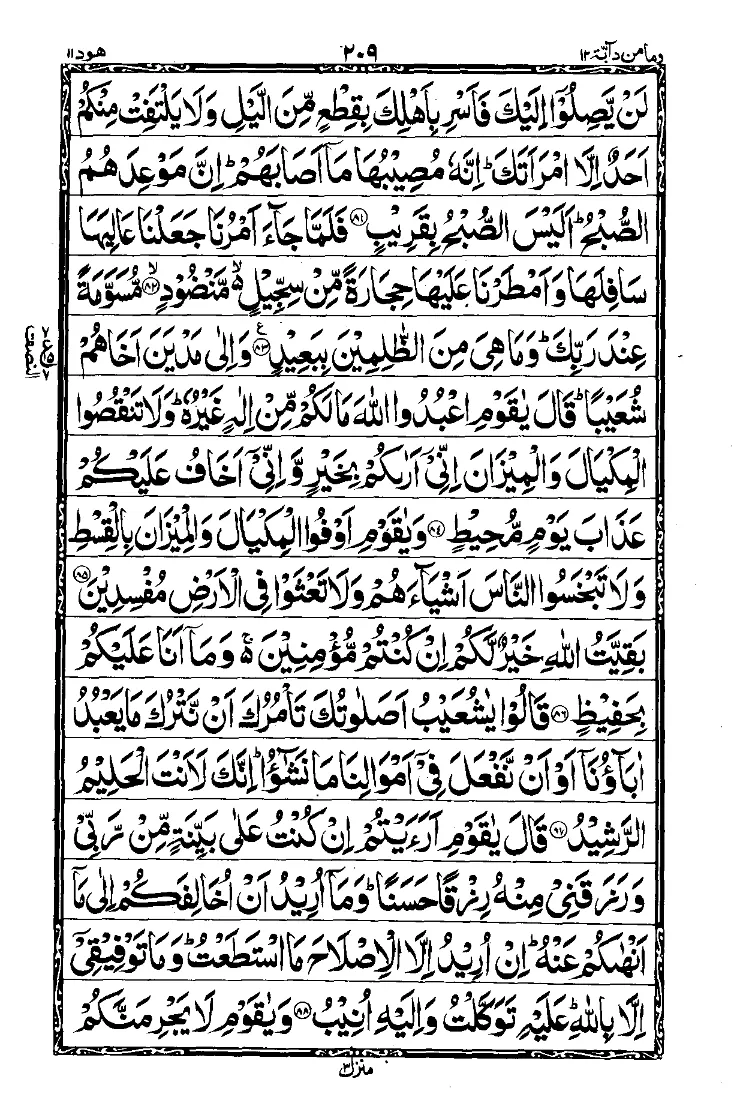 وما من دآبة ١٢
٢٠٩
هود ١١
لَنْ يَّصِلُوْۤا اِلَيْكَ فَاَسْرِ بِاَهْلِكَ بِقِطْعٍ مِّنَ الَّيْلِ وَلَا يَلْتَفِتْ مِنْكُمْ
اَحَدٌ اِلَّا امْرَاَتَكَ ؕ اِنَّهٗ مُصِيْبُهَا مَاۤ اَصَابَهُمْ ؕ اِنَّ مَوْعِدَهُمُ
الصُّبْحُ ؕ اَلَيْسَ الصُّبْحُ بِقَرِيْبٍ ﴿۸۱﴾ فَلَمَّا جَآءَ اَمْرُنَا جَعَلْنَا عَالِيَهَا
سَافِلَهَا وَاَمْطَرْنَا عَلَيْهَا حِجَارَةً مِّنْ سِجِّيْلٍ ۙ۬ مَّنْضُوْدٍ ﴿ۙ۸۲﴾ مُّسَوَّمَةً
عِنْدَ رَبِّكَ ؕ وَمَا هِىَ مِنَ الظّٰلِمِيْنَ بِبَعِيْدٍ ﴿۸۳﴾ ع وَاِلٰى مَدْيَنَ اَخَاهُمْ
شُعَيْبًا ؕ قَالَ يٰقَوْمِ اعْبُدُوا اللّٰهَ مَا لَكُمْ مِّنْ اِلٰهٍ غَيْرُهٗ ؕ وَلَا تَنْقُصُوا
الْمِكْيَالَ وَالْمِيْزَانَ اِنِّىْۤ اَرٰىكُمْ بِخَيْرٍ وَّاِنِّىْۤ اَخَافُ عَلَيْكُمْ
عَذَابَ يَوْمٍ مُّحِيْطٍ ﴿۸۴﴾ وَيٰقَوْمِ اَوْفُوا الْمِكْيَالَ وَالْمِيْزَانَ بِالْقِسْطِ
وَلَا تَبْخَسُوا النَّاسَ اَشْيَآءَهُمْ وَلَا تَعْثَوْا فِى الْاَرْضِ مُفْسِدِيْنَ ﴿۸۵﴾
بَقِيَّتُ اللّٰهِ خَيْرٌ لَّكُمْ اِنْ كُنْتُمْ مُّؤْمِنِيْنَ ۚ۬ وَمَاۤ اَنَا عَلَيْكُمْ
بِحَفِيْظٍ ﴿۸۶﴾ قَالُوْا يٰشُعَيْبُ اَصَلٰوتُكَ تَاْمُرُكَ اَنْ نَّتْرُكَ مَا يَعْبُدُ
اٰبَآؤُنَاۤ اَوْ اَنْ نَّفْعَلَ فِىْۤ اَمْوَالِنَا مَا نَشٰٓؤُا ؕ اِنَّكَ لَاَنْتَ الْحَلِيْمُ
الرَّشِيْدُ ﴿۸۷﴾ قَالَ يٰقَوْمِ اَرَءَيْتُمْ اِنْ كُنْتُ عَلٰى بَيِّنَةٍ مِّنْ رَّبِّىْ
وَرَزَقَنِىْ مِنْهُ رِزْقًا حَسَنًا ؕ وَمَاۤ اُرِيْدُ اَنْ اُخَالِفَكُمْ اِلٰى مَاۤ
اَنْهٰىكُمْ عَنْهُ ؕ اِنْ اُرِيْدُ اِلَّا الْاِصْلَاحَ مَا اسْتَطَعْتُ ؕ وَمَا تَوْفِيْقِىْۤ
اِلَّا بِاللّٰهِ ؕ عَلَيْهِ تَوَكَّلْتُ وَاِلَيْهِ اُنِيْبُ ﴿۸۸﴾ وَيٰقَوْمِ لَا يَجْرِمَنَّكُمْ
منزل ٣